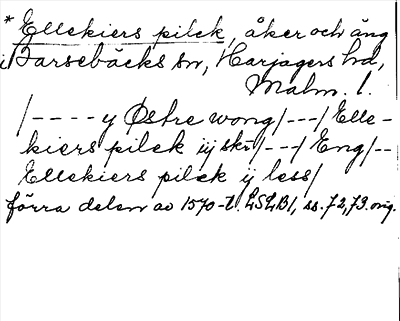 * Ellekiers pilck, åker och äng
i Barsebäcks sn, Harjagers hd,
Malm. l.
/---- y Østre wong/---/ Elle-
kiers pilck iij skr/---/ Eng/--
Ellekiers pilck ij less/
förra delen av 1570-t. LSLB1, ss. 72, 73. orig.